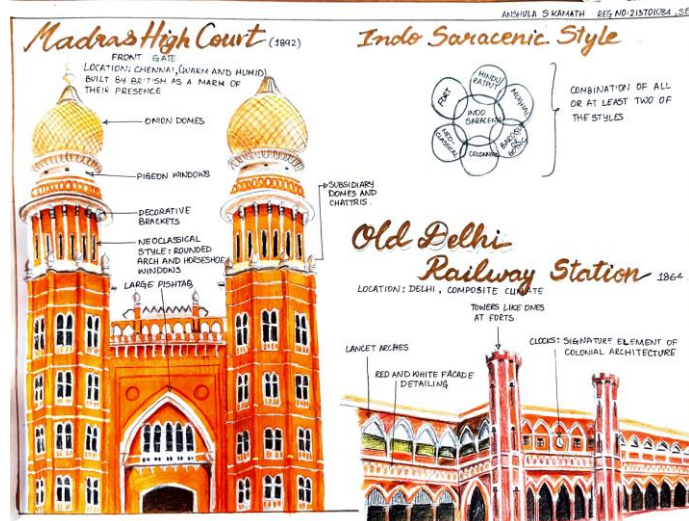 ANSHULA S KAMATH REG NO: 215701084, SE
Madras High Court (1892)
FRONT GATE
LOCATION: CHENNAI, (WARM AND HUMID)
BUILT BY BRITISH AS A MARK OF
THEIR PRESENCE
ONION DOMES
PIGEON WINDOWS
DECORATIVE
BRACKETS
NEOCLASSICAL
STYLE: ROUNDED
ARCH AND HORSESHOE
WINDOWS
LARGE PISHTAB
SUBSIDIARY
DOMES AND
CHATTRIS.
Indo Saracenic Style
HINDU/
RAJPUT
MUGHAL
FORT
INDO
SARACENIC
NEO-
CLASSICAL
COLONIAL
COMBINATION OF ALL
OR AT LEAST TWO OF
THE STYLES.
Old Delhi
Railway Station 1864
LOCATION: DELHI, COMPOSITE CLIMATE
TOWERS LIKE ONES
AT FORTS
LANCET ARCHES
CLOCKS: SIGNATURE ELEMENT OF
COLONIAL ARCHITECTURE
RED AND WHITE FACADE
DETAILING